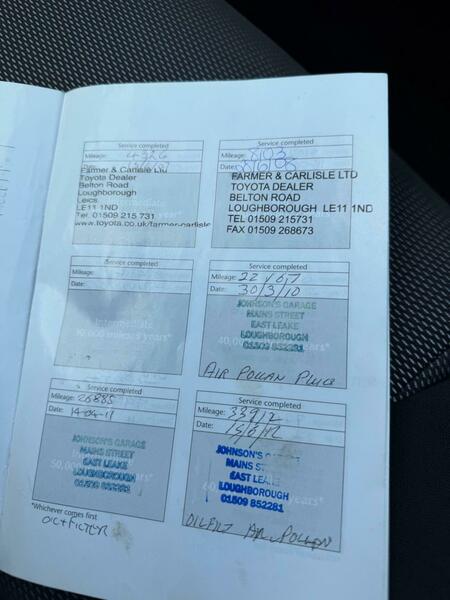 Service completed
Mileage: 4326
Date:
Farmer & Carlisle Ltd
Toyota Dealer
Belton Road
Loughborough
Leics
LE11 1ND
Tel. 01509 215 731
www.toyota.co.uk/farmer-carlisle
Service completed
Mileage: 8193
Date:
FARMER & CARLISLE LTD
TOYOTA DEALER
BELTON ROAD
LOUGHBOROUGH LE11 1ND
TEL 01509 215731
FAX 01509 268673
Service completed
Mileage:
Date:
Intermediate
30,000 miles/3 years*
Service completed
Mileage:
Date: 30/3/10
JOHNSON'S GARAGE
MAINS STREET
EAST LEAKE
LOUGHBOROUGH
01509 852281
40,000
AIR POLLAN PLUG
Service completed
Mileage: 26885
Date: 14-04-11
JOHNSON'S GARAGE
MAINS STREET
EAST LEAKE
LOUGHBOROUGH
01509 852281
50,000
*Whichever comes first
OIL+FILTER
Service completed
Mileage: 33912
Date: 15/6/12
JOHNSON'S G
MAINS ST
EAST LEAKE
LOUGHBOROUGH
01509 852281
AIR POLLAN